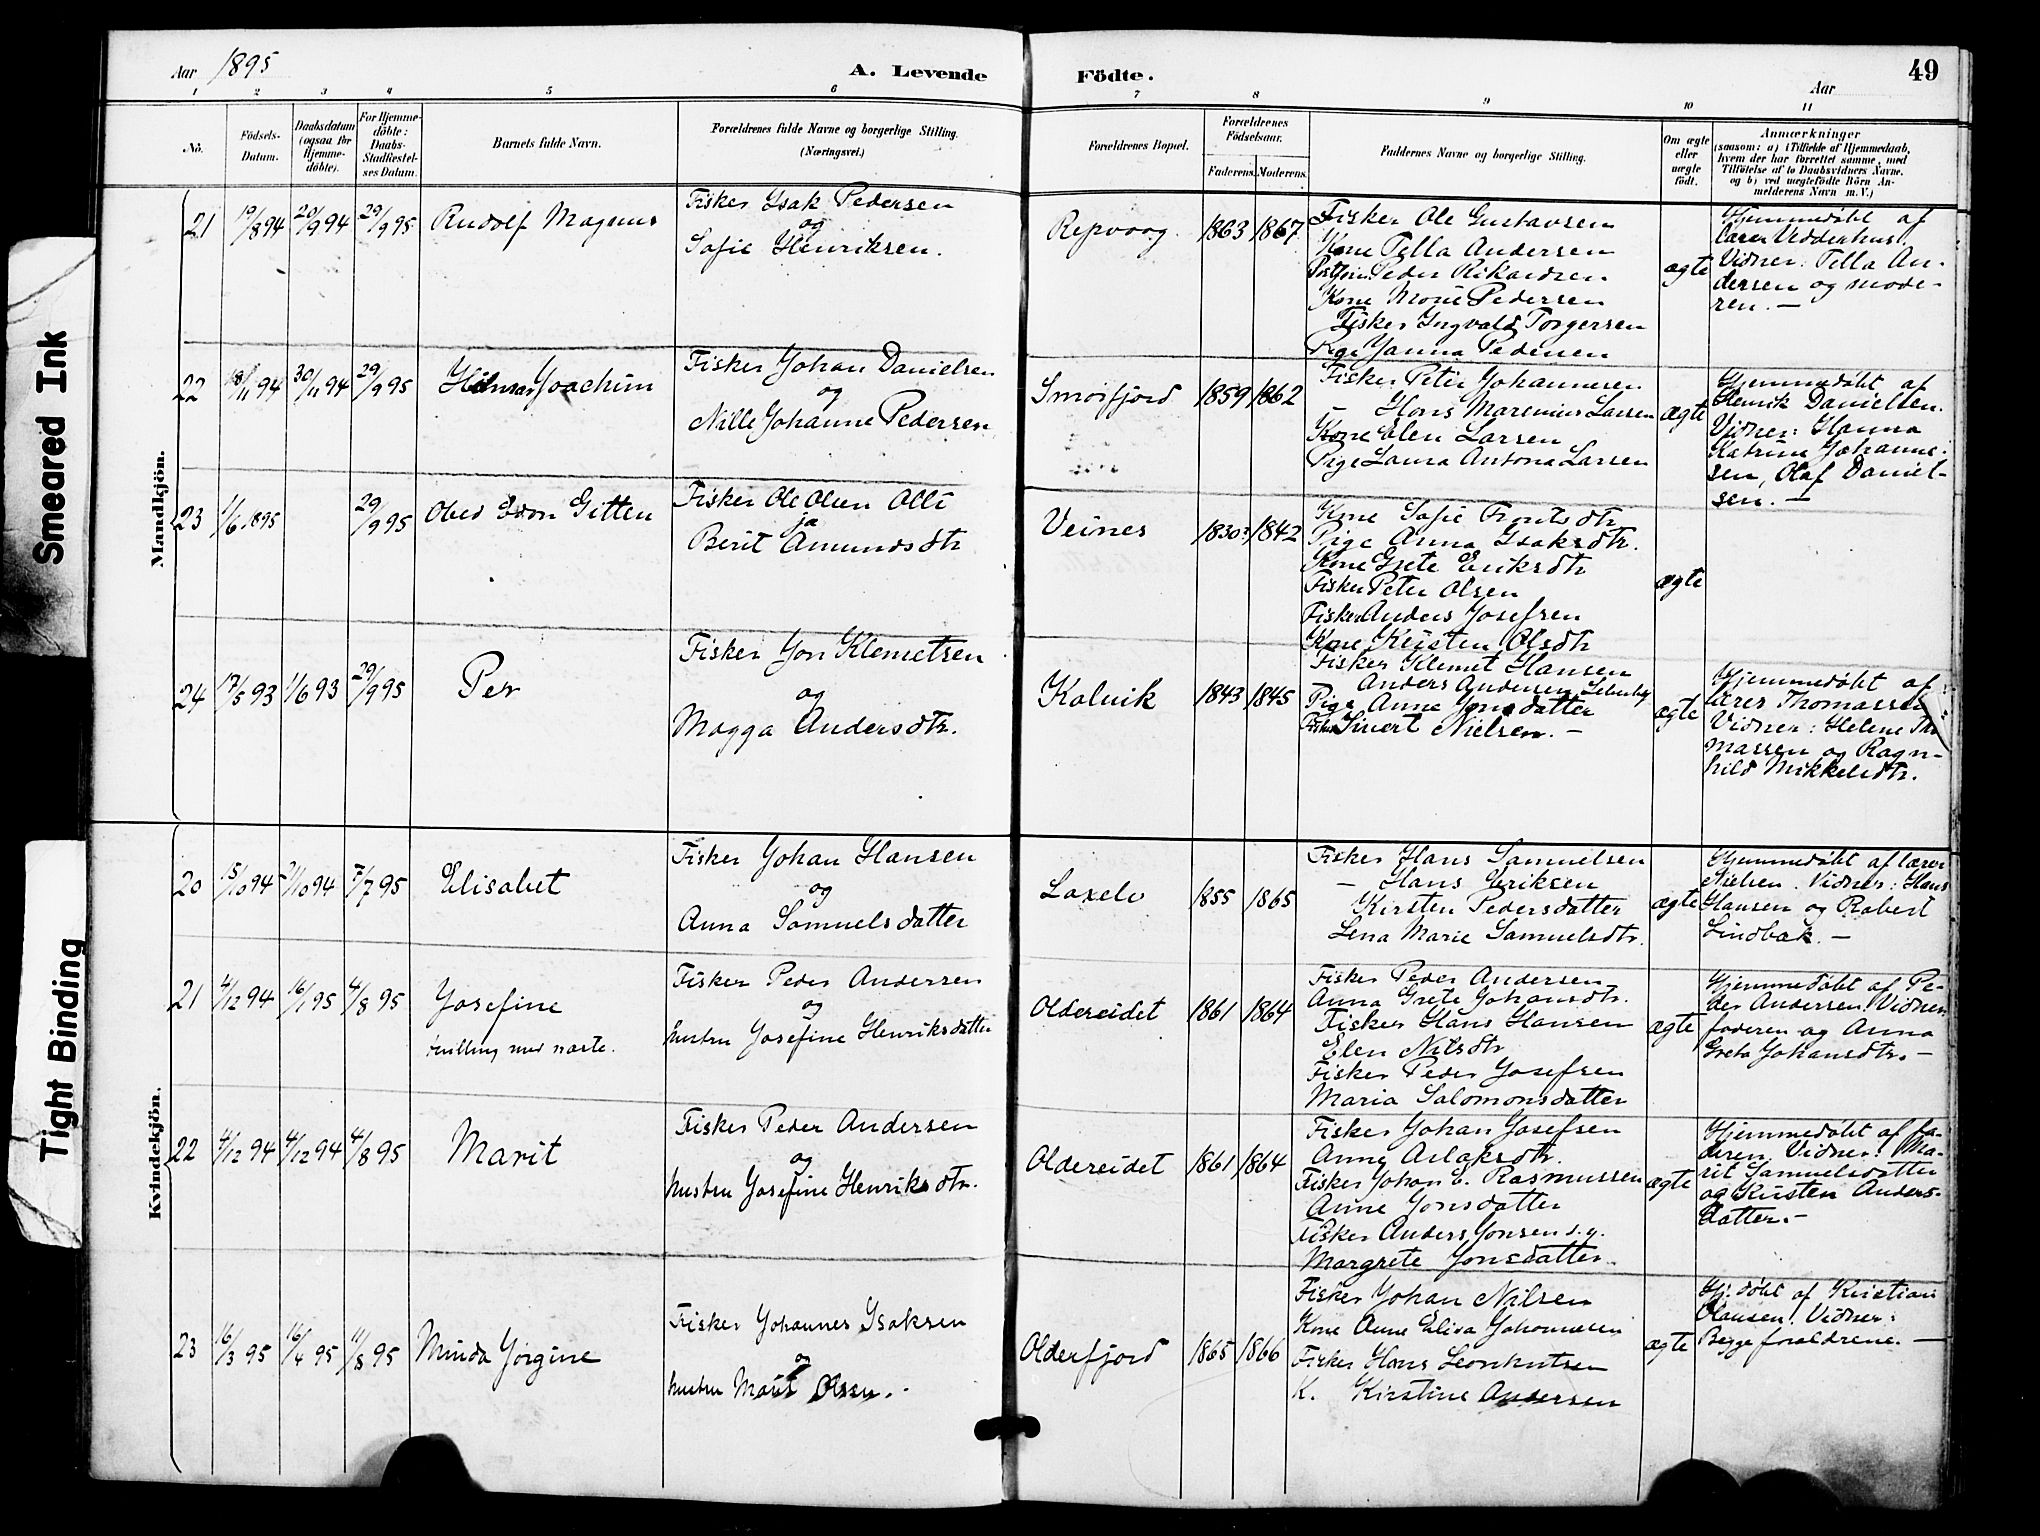 Aar 1895
A. Levende Födte.
Aar
49
1 2 3 4 5 6 7 8 9 10 11
No.
Födsels-
Datum.
Daabsdatum
(ogsaa for
Hjemme-
döbte).
For Hjemme-
döbte:
Daabs-
Stadfæstel-
ses Datum.
Barnets fulde Navn.
Forældrenes fulde Navne og borgerlige Stilling.
(Næringsvei.)
Forældrenes Bopæl.
Forældrenes
Födselsaar.
Faderens. Moderens.
Faddernes Navne og borgerlige Stilling.
Om ægte
eller
uægte
födt.
Anmærkninger
(saasom: a) i Tilfælde af Hjemmedaab,
hvem der har forrettet samme, med
Tilföielse af to Daabsvidners Navne,
og b) ved uægtefödte Börn An-
melderens Navn m. V.)
Smeared Ink
Tight Binding
Mandkjön.
21 19/8 94 20/9 94 29/9 95 Rudolf Magnus
Fisker Isak Pedersen
og
Sofie Henriksen.
Repvaag 1863 1867
Fisker Ole Gustavsen
Kone Tella Andersen
Peder Rikardsen
Kone Pedersen
Fisker Ingvald Torgersen
Pige Janna Pedersen
ægte
Hjemmedøbt af
Lærer Vedderhus.
Vidner: Tella An-
dersen og mode-
ren. —
22 18/11 94 30/11 94 29/9 95 Hilmar Joachim
Fisker Johan Danielsen
og
Nille Johanne Pedersen
Smørfjord 1859 1862
Fisker Peter Johannesen
— Hans Marenius Larsen
Kone Elen Larsen
Pige Laura Antona Larsen
ægte
Hjemmedøbt af
Henrik Danielsen.
Vidner: Hanna
Katrine Johanne-
sen, Olaf Daniel-
sen. —
23 1/6 1895 29/9 95 Obed Edon Gitten
Fisker Ole Olsen Olli
ja
Berit Amundsdtr
Veines 1830? 1842
Kone Sofie
Pige Anna Isaksdtr.
Kone Grete Eriksdtr
Fisker Peter Olsen
Fisker Anders Josefsen
Kone Kirsten Olsdtr
ægte
24 17/5 93 1/6 93 29/9 95 Per
Fisker Jon Klemetsen
og
Magga Andersdtr.
Kolvik 1843 1845
Fisker Klemet Hansen
Anders Andersen
Pige Anne Jonsdatter
Fisker Sivert Nielsen. —
ægte
Hjemmedøbt af
lærer Thomassen
Vidner: Helene Tho
massen og Ragn-
hild Mikkelsdtr.
Kvindekjön.
20 15/10 94 /10 94 7/7 95 Elisabet
Fisker Johan Hansen
og
Anna Samuelsdatter
Laxelv 1855 1865
Fisker Hans Samuelsen
— Hans Eriksen
Kirsten Pedersdatter
Lena Marie Samuelsdtr.
ægte
Hjemmedøbt af lærer
Nielsen. Vidner: Hans
Hansen og Robert
Lindbak. —
21 4/12 94 16/1 95 4/8 95 Josefine
tvilling med næste.
Fisker Peder Andersen
og
hustru Josefine Henriksdatter
Oldereidet 1861 1864
Fisker Peder Andersen
Anna Grete Johansdtr.
Fisker Hans Hansen
Elen Nilsdtr
Fisker Peder Josefsen
Maria Salomonsdatter
ægte
Hjemmedøbt af Pe-
der Andersen. Vidner
faderen og Anna
Greta Johansdtr. —
22 4/12 94 4/12 94 4/8 95 Marit
Fisker Peder Andersen
og
hustru Josefine Henriksdtr.
Oldereidet 1861 1864
Fisker Johan Josefsen
Anne Aslaksdtr.
Fisker Johan E. Rasmussen
Anne Jonsdatter
Fisker Anders Jonsen d. y.
Margrete Jonsdatter.
ægte
Hjemmedøbt af fa-
deren. Vidner: Ma-
rit Samuelsdatter
og Kirsten Anders-
datter. —
23 16/3 95 16/4 95 11/8 95 Minda Jørgine
Fisker Johannes Isaksen
og
hustru Marit Olsen.
Olderfjord 1865 1866
Fisker Johan Nilsen
Kone Anne Elisa Johannesen
Fisker Hans Leonhutsen
K. Kirstine Andersen
ægte
Hj. døbt af Kristian
Olausen. Vidner:
Begge forældrene. —